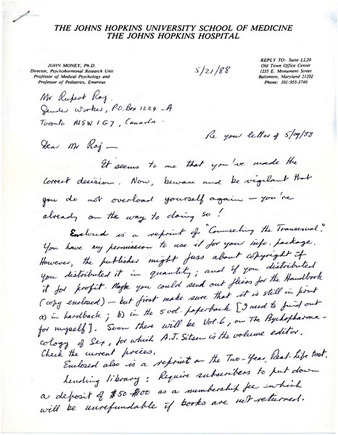 THE JOHNS HOPKINS UNIVERSITY SCHOOL OF MEDICINE
THE JOHNS HOPKINS HOSPITAL
JOHN MONEY, Ph.D.
Director, Psychohormonal Research Unit
Professor of Medical Psychology and
Professor of Pediatrics, Emeritus
REPLY TO: Suite LL20
Old Town Office Center
1235 E. Monument Street
Baltimore, Maryland 21202
Phone: 301-955-3740
5/21/88
Mr Rupert Raj
Gender Worker, P.O. Box 1224-A
Toronto M5W 1G7, Canada.
Re your letter of 5/19/88
Dear Mr Raj —
It seems to me that you've made the
correct decision. Now, beware and be vigilant that
you do not overload yourself again — you're
already on the way to doing so!
Enclosed is a reprint of "Counseling the Transexual."
You have my permission to use it for your info. package.
However, the publisher might fuss about copyright if
you distributed it in quantity; and if you distributed
it for profit. Maybe you could send out fliers for the Handbook
(copy enclosed) — but first make sure that it is still in print
a) in hardback; b) in the 5 vol. paperback [I need to find out
for myself]. Soon there will be Vol 6, on The Psychopharma-
cology of Sex, for which A.J. Sitsen is the volume editor.
Check the current prices.
Enclosed also is a reprint on the Two-Year Real-Life Test.
Lending library: Require subscribers to put down
a deposit of $50-$100 as a membership fee which
will be unrefundable if books are not returned.